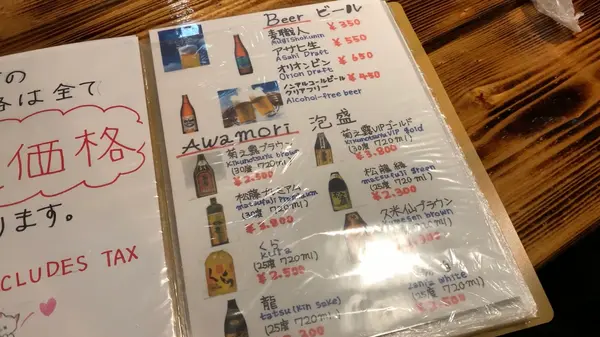 の
は全て
価格
ります。
CLUDES TAX
Beer ビール
麦職人
Mugishokunin
¥350
アサヒ生
Asahi Draft
¥550
オリオンビン
Orion Draft
¥650
ノンアルコールビール
クリアフリー
Alcohol-free beer
¥450
Awamori 泡盛
菊之露ブラウン
Kikunotsuyu brown
(30度 720ml)
¥2.500
菊之露VIPゴールド
Kikunotsuyu VIP gold
(30度 720ml)
¥3.800
松藤プレミアム
matsufuji Premium
(30度 720ml)
松藤 緑
matsufuji green
(25度 720ml)
¥2.300
くら
Kura
(25度 720ml)
¥2.500
久米仙ブラウン
brown
720ml)
龍
tatsu (Kin sake)
(25度 720ml)
white
(25度 720ml)